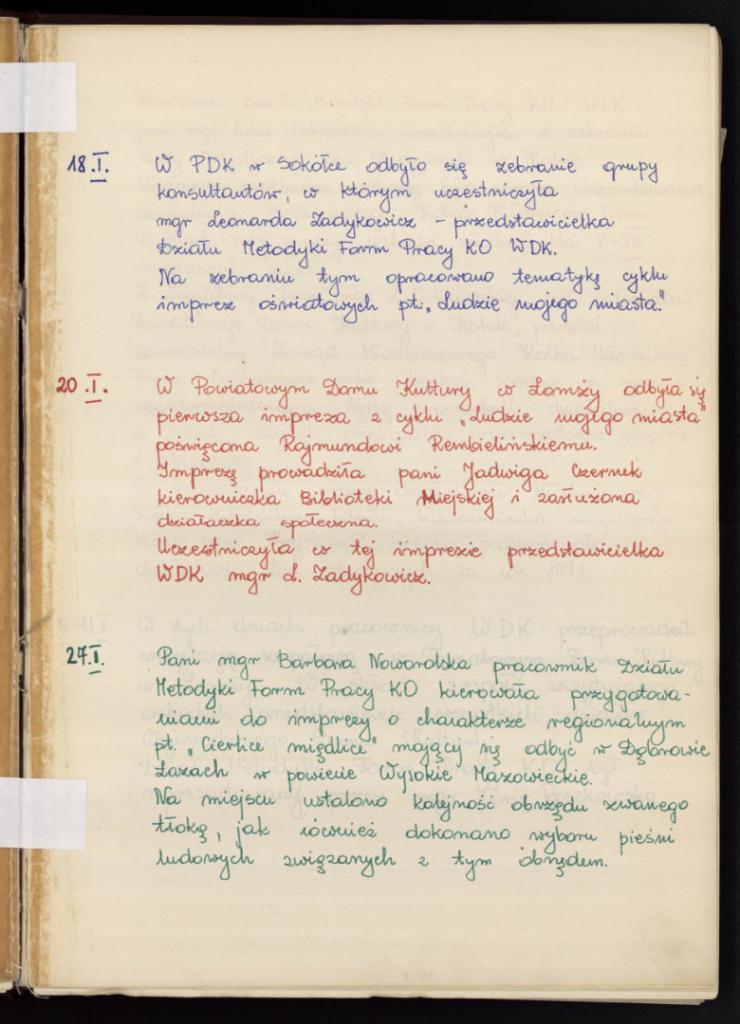 18.I. W PDK w Sokółce odbyło się zebranie grupy
konsultantów, w którym uczestniczyła
mgr Leonarda Zadykowicz – przedstawicielka
Działu Metodyki Form Pracy KO WDK.
Na zebraniu tym opracowano tematykę cyklu
imprez oświatowych pt. „Ludzie mojego miasta."
20.I. W Powiatowym Domu Kultury w Łomży odbyła się
pierwsza impreza z cyklu „Ludzie mojego miasta"
poświęcona Rajmundowi Rembielińskiemu.
Imprezę prowadziła pani Jadwiga Czernek
kierowniczka Biblioteki Miejskiej i zasłużona
działaczka społeczna.
Uczestniczyła w tej imprezie przedstawicielka
WDK mgr L. Zadykowicz.
27.I. Pani mgr Barbara Noworolska pracownik Działu
Metodyki Form Pracy KO kierowała przygotowa-
niami do imprezy o charakterze regionalnym
pt. „Cierlice międlice" mający się odbyć w Dąbrowie
Łazach w powiecie Wysokie Mazowieckie.
Na miejscu ustalono kolejność obrzędu zwanego
tłoką, jak również dokonano wyboru pieśni
ludowych związanych z tym obrzędem.